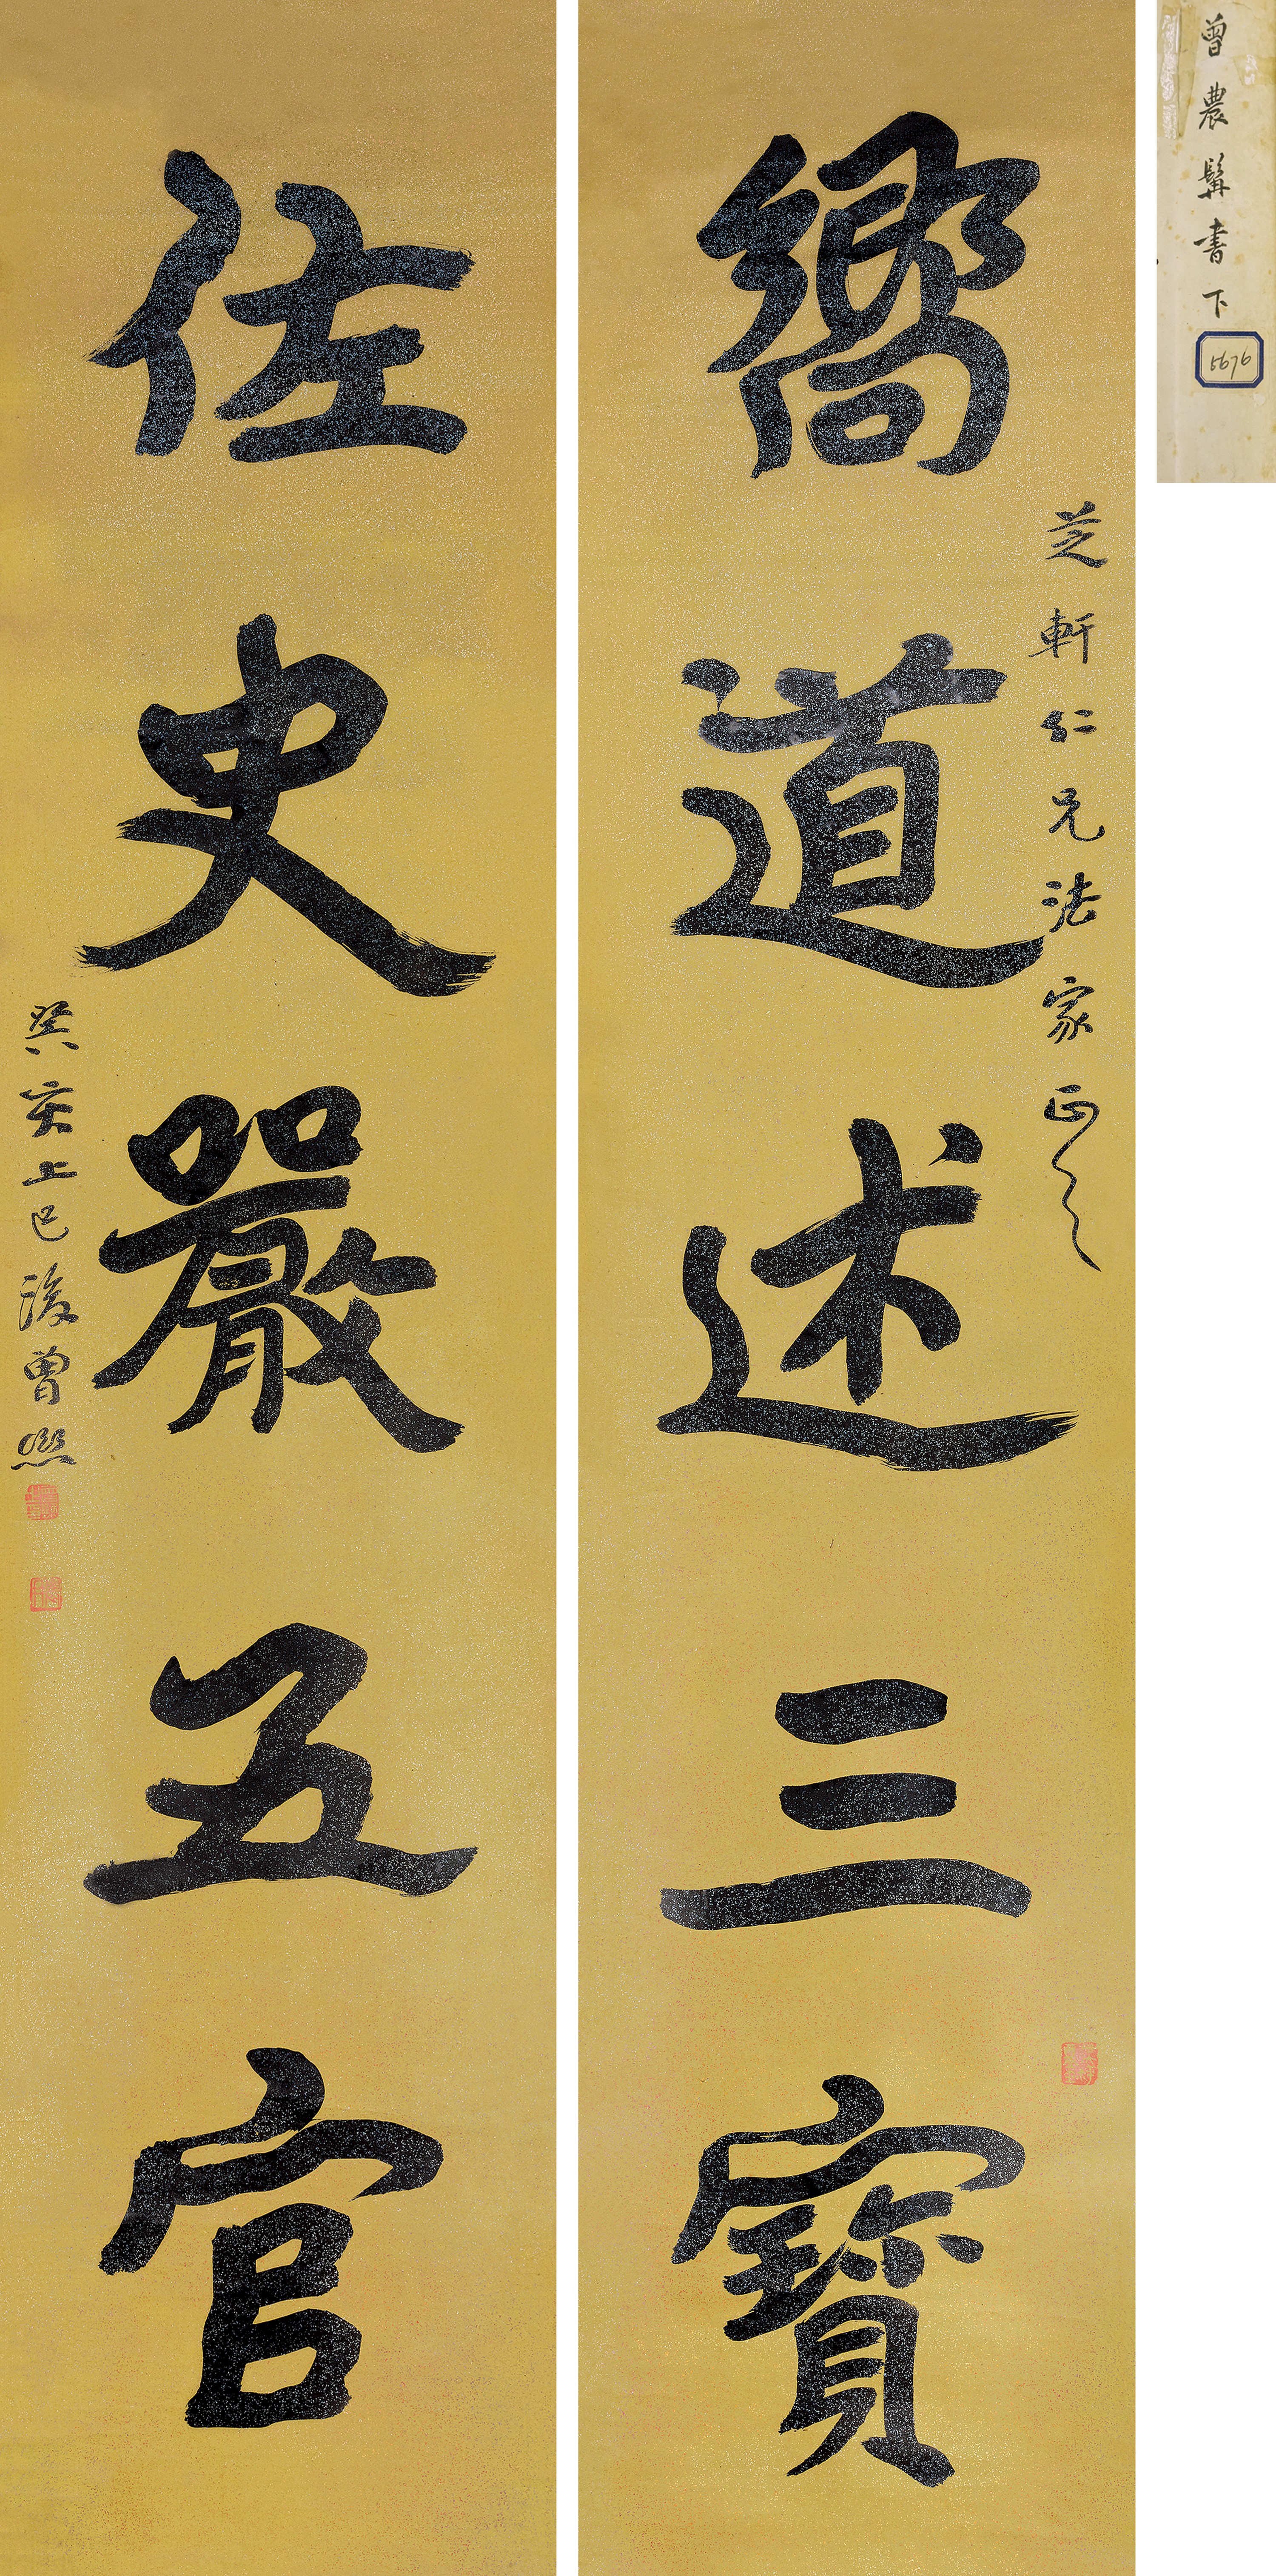 曾農髯書下
5676
芝軒仁兄法家正之
嚮道述三寶
佐史嚴五官
癸亥上巳後曾熙